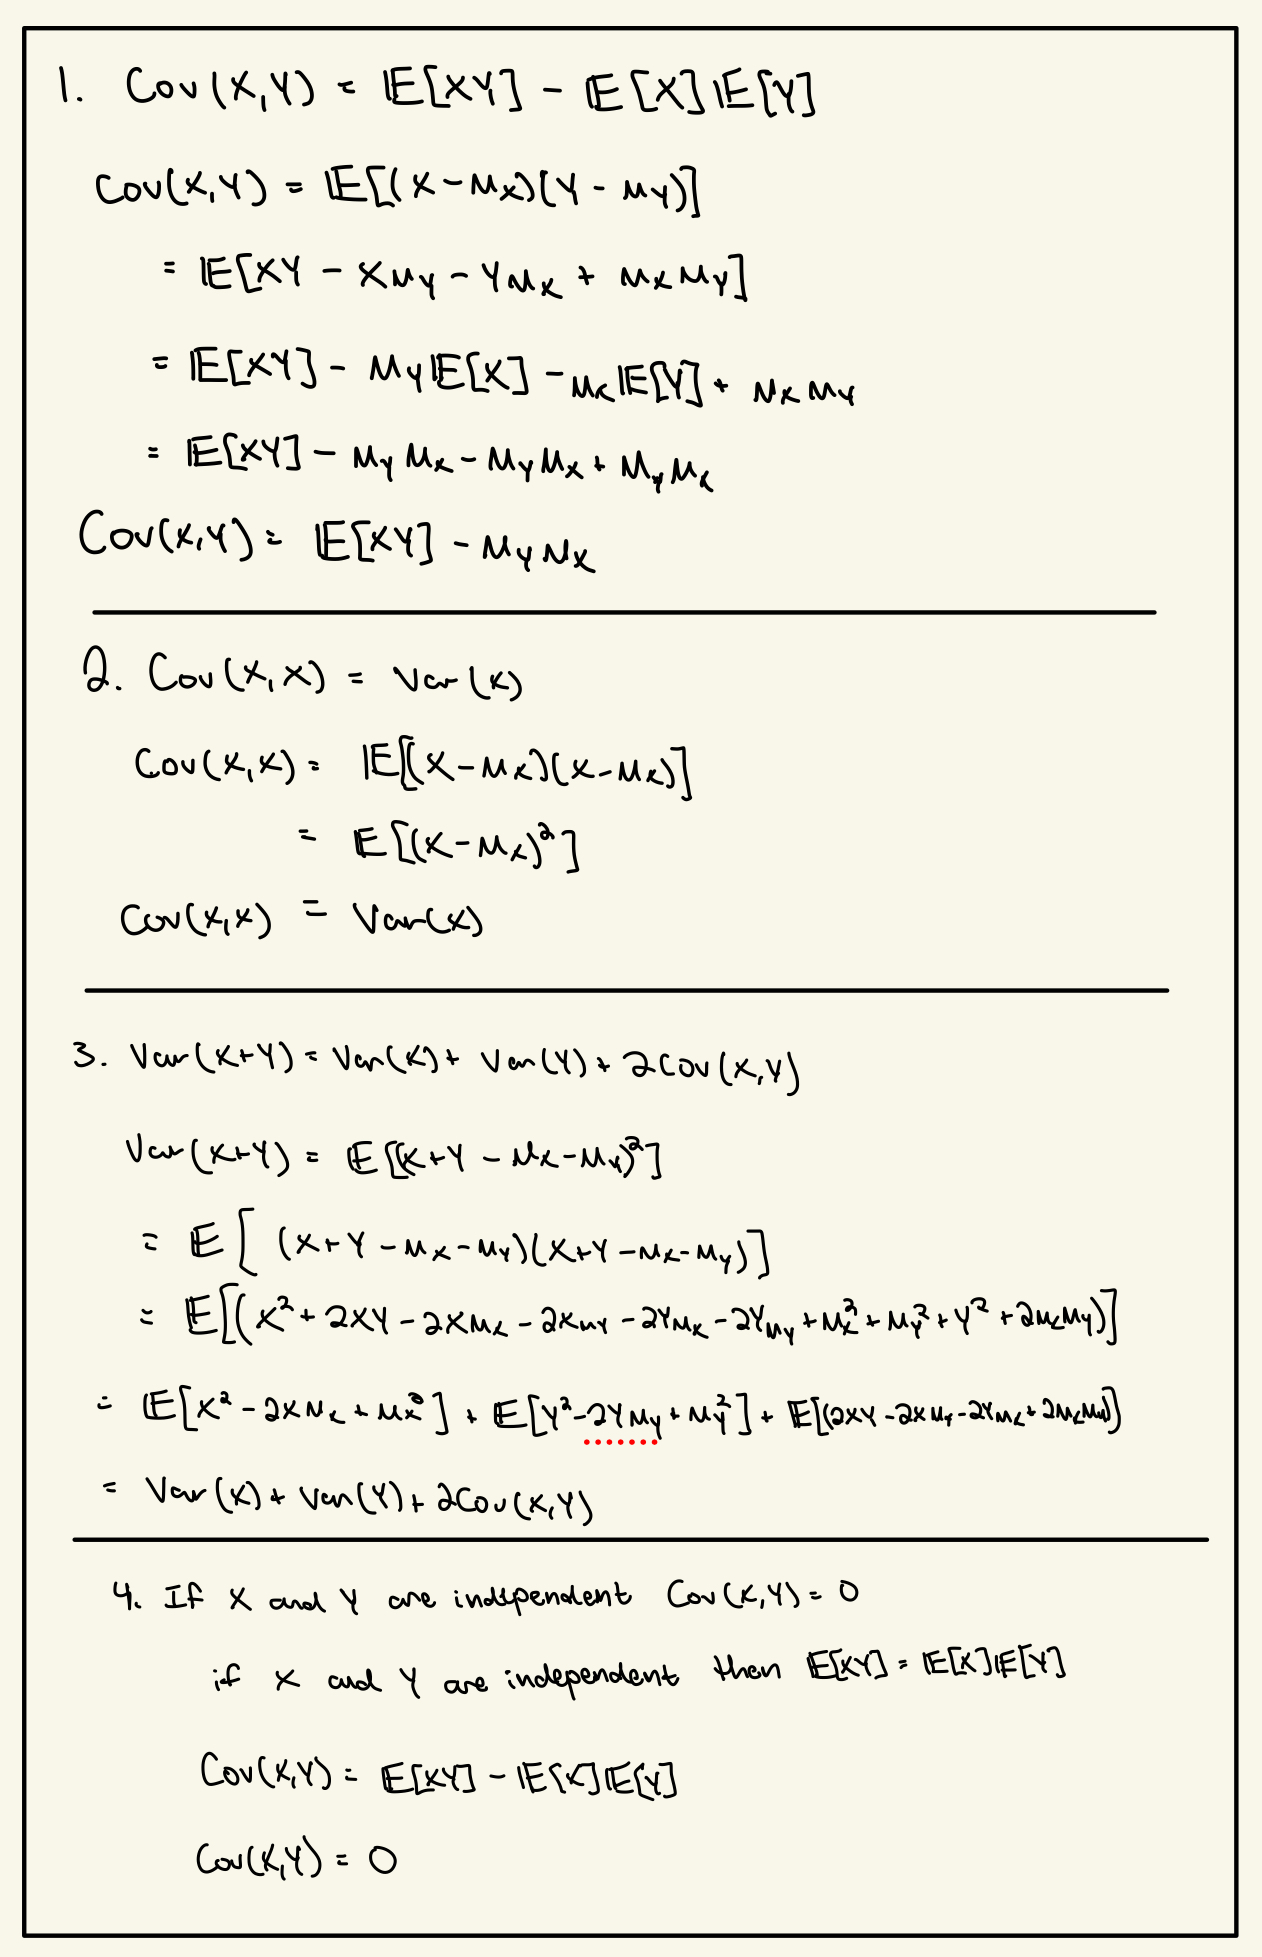 1. Cov(X,Y) = 𝔼[XY] - 𝔼[X]𝔼[Y]
Cov(X,Y) = 𝔼[(X-μ_X)(Y-μ_Y)]
= 𝔼[XY - Xμ_Y - Yμ_X + μ_X μ_Y]
= 𝔼[XY] - μ_Y𝔼[X] - μ_X𝔼[Y] + μ_X μ_Y
= 𝔼[XY] - μ_Y μ_X - μ_Y μ_X + μ_Y μ_X
Cov(X,Y) = 𝔼[XY] - μ_Y μ_X
2. Cov(X,X) = Var(X)
Cov(X,X) = 𝔼[(X-μ_X)(X-μ_X)]
= 𝔼[(X-μ_X)²]
Cov(X,X) = Var(X)
3. Var(X+Y) = Var(X) + Var(Y) + 2Cov(X,Y)
Var(X+Y) = 𝔼[(X+Y - μ_X - μ_Y)²]
= 𝔼[(X+Y - μ_X - μ_Y)(X+Y - μ_X - μ_Y)]
= 𝔼[(X² + 2XY - 2Xμ_X - 2Xμ_Y - 2Yμ_X - 2Yμ_Y + μ_X² + μ_Y² + Y² + 2μ_Xμ_Y)]
= 𝔼[X² - 2Xμ_X + μ_X²] + 𝔼[Y² - 2Yμ_Y + μ_Y²] + 𝔼[(2XY - 2Xμ_Y - 2Yμ_X + 2μ_Xμ_Y)]
= Var(X) + Var(Y) + 2Cov(X,Y)
4. If X and Y are independent Cov(X,Y) = 0
if X and Y are independent then 𝔼[XY] = 𝔼[X]𝔼[Y]
Cov(X,Y) = 𝔼[XY] - 𝔼[X]𝔼[Y]
Cov(X,Y) = 0